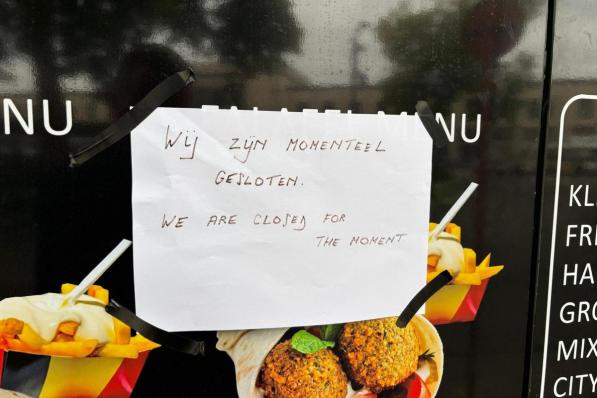 NU
MENU
Wij zijn momenteel
gesloten.
WE ARE CLOSED FOR
THE MOMENT
KL
FRI
HA
GRO
MIX
CITY